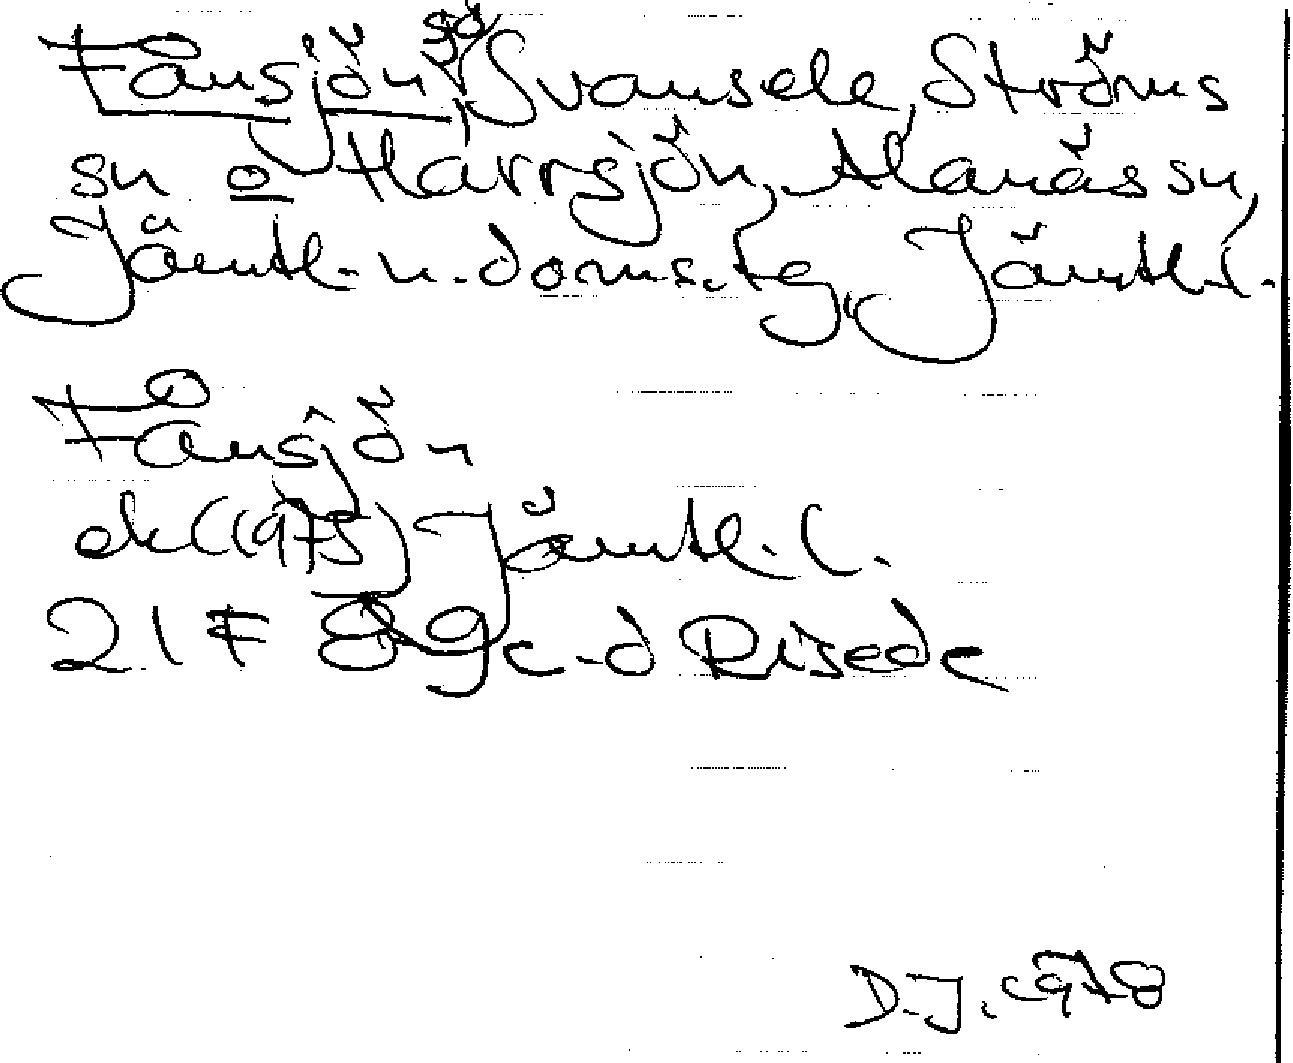 Fånsjön, sjö Svansele, Ströms
sn o Harrsjön, Alanäs sn,
Jämtl. n. doms. tg, Jämtl. l.
Fånsjön
ek (1975) Jämtl. l.
21 F 8-9 c-d Risede
D.J. 1978